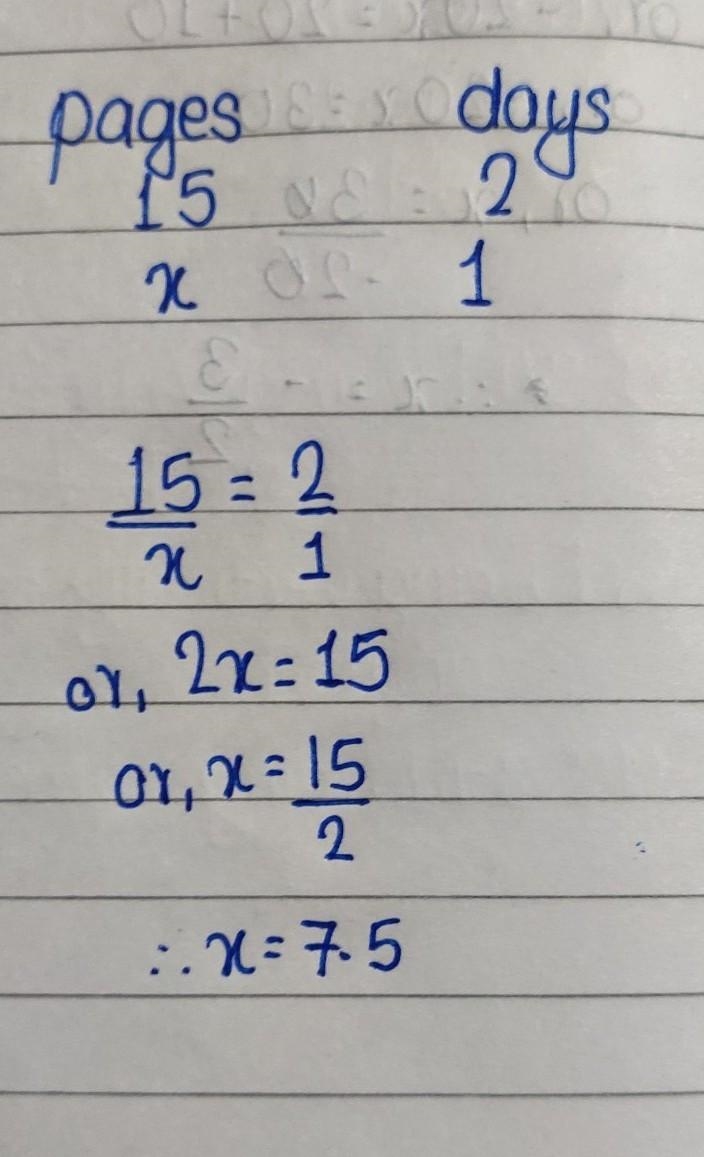 pages days
15 2
x 1
15/x = 2/1
or, 2x = 15
or, x = 15/2
∴ x = 7.5